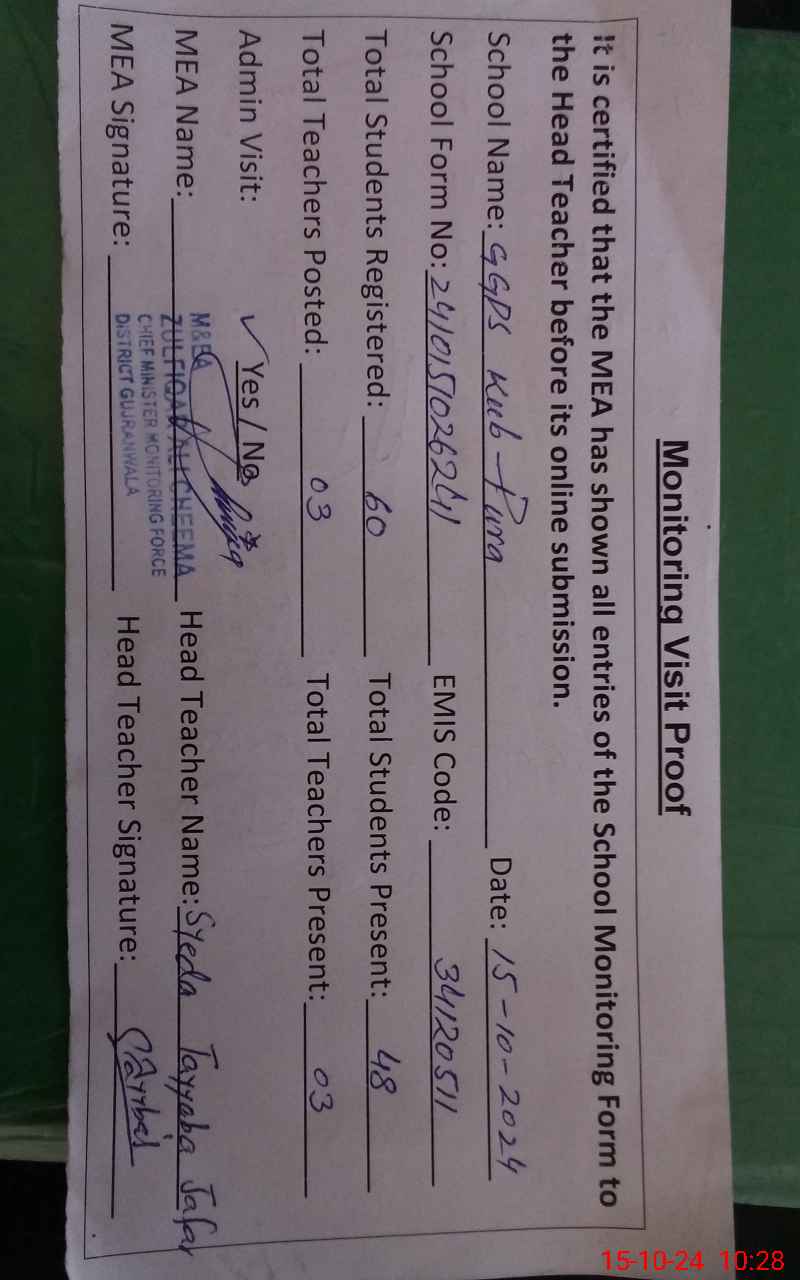 Monitoring Visit Proof
It is certified that the MEA has shown all entries of the School Monitoring Form to
the Head Teacher before its online submission.
School Name: GGPS Kub Pura Date: 15-10-2024
School Form No: EMIS Code: 34120511
Total Students Registered: 60 Total Students Present: 48
Total Teachers Posted: 03 Total Teachers Present: 03
Admin Visit: ✓ Yes / No
MEA Name: Head Teacher Name: Syeda Tayyaba Jafar
M&EA
ZULFIQAR ALI CHEEMA
CHIEF MINISTER MONITORING FORCE
DISTRICT GUJRANWALA
MEA Signature: Head Teacher Signature:
15-10-24 10:28